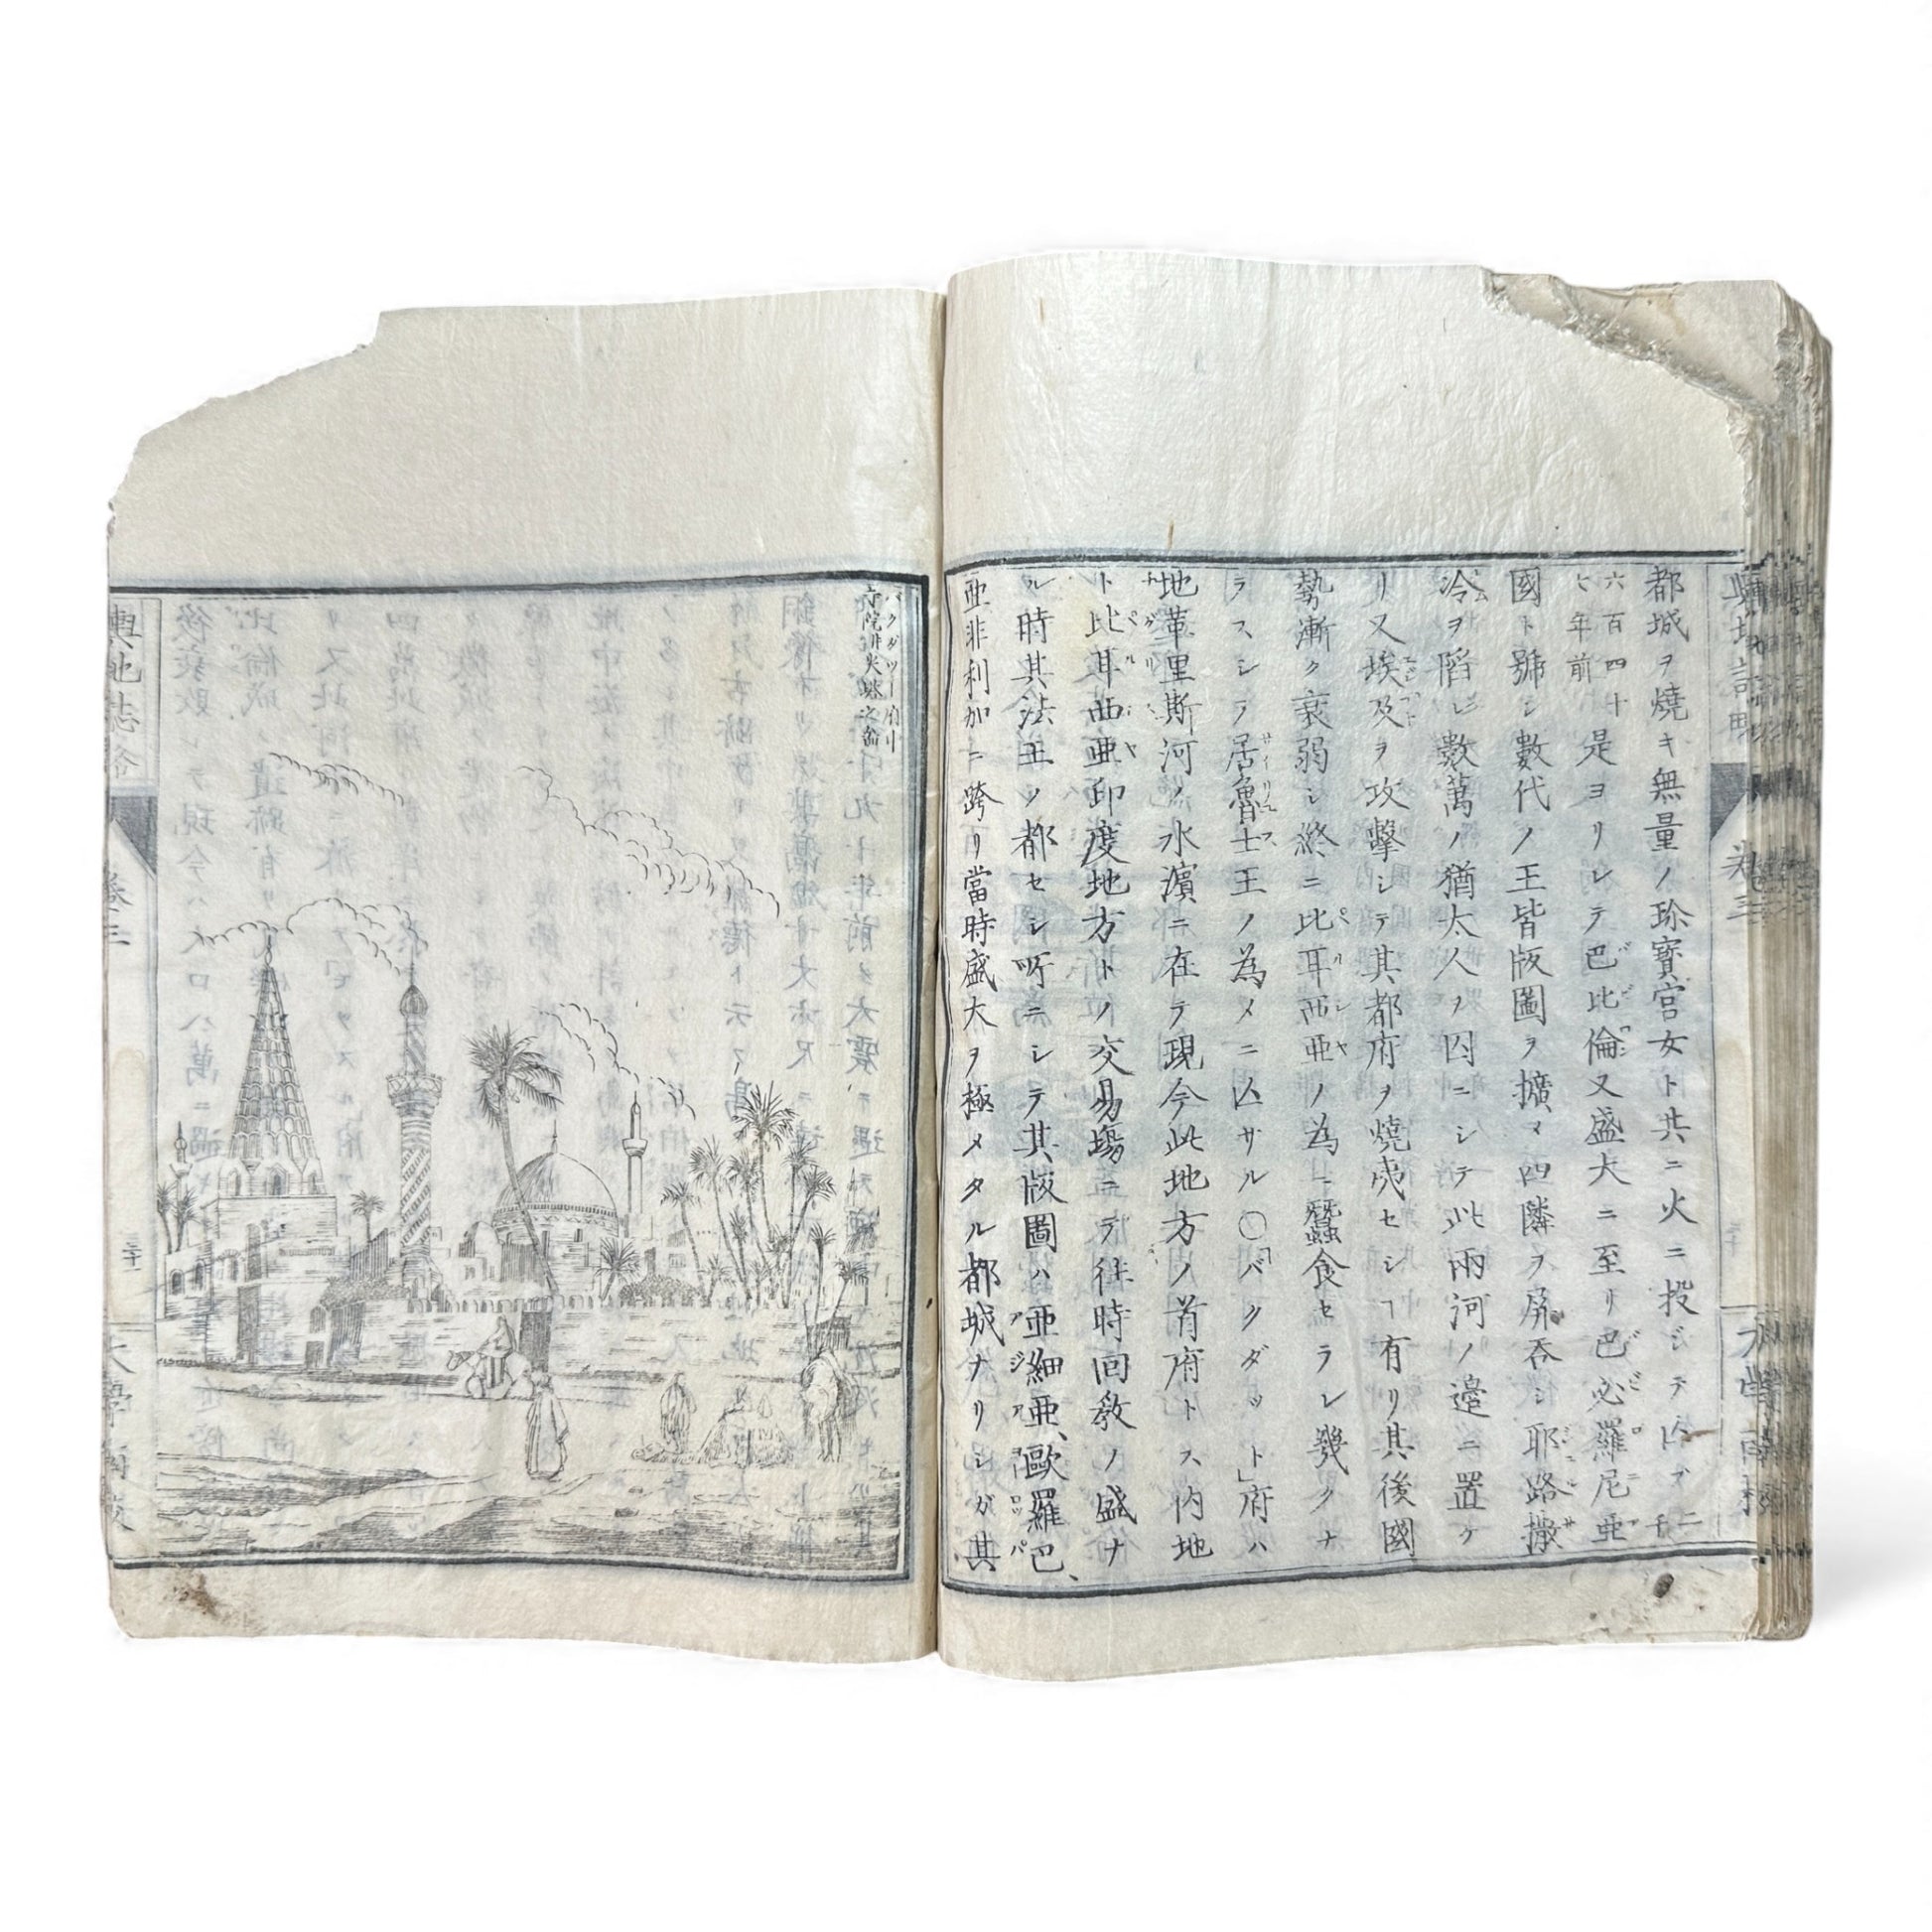 都城ヲ燒キ無量ノ珍寳宮女ト共ニ火ニ投ジテ亾ブ二千
六百四十七年前是ヨリシテ巴比倫又盛大ニ至リ巴必羅尼亜
國ト號シ數代ノ王皆版圖ヲ擴メ四隣ヲ屏吞シ耶路撒
冷ヲ陷レ數萬ノ猶太人ヲ囚ニシテ此兩河ノ邉ニ置ケ
リ又埃及ヲ攻撃シテ其都府ヲ燒夷セシヿ有リ其後國
勢漸ク衰弱シ終ニ比耳西亜ノ為ニ蠶食セラレ幾クナ
ラスシテ居魯士王ノ為メニ亾サル〇「バクダット」府ハ
地革里斯河ノ水濵ニ在テ現今此地方ノ首府トス内地
ト比耳西亜印度地方トノ交易塲ニテ徃時回敎ノ盛ナ
ル時其法王ノ都セシ所ニシテ其版圖ハ亜細亜、歐羅巴、
亜非利加ニ跨リ當時盛大ヲ極メタル都城ナリシガ其
バクダツト府中
寺院
輿地誌畧
卷三
大學南校